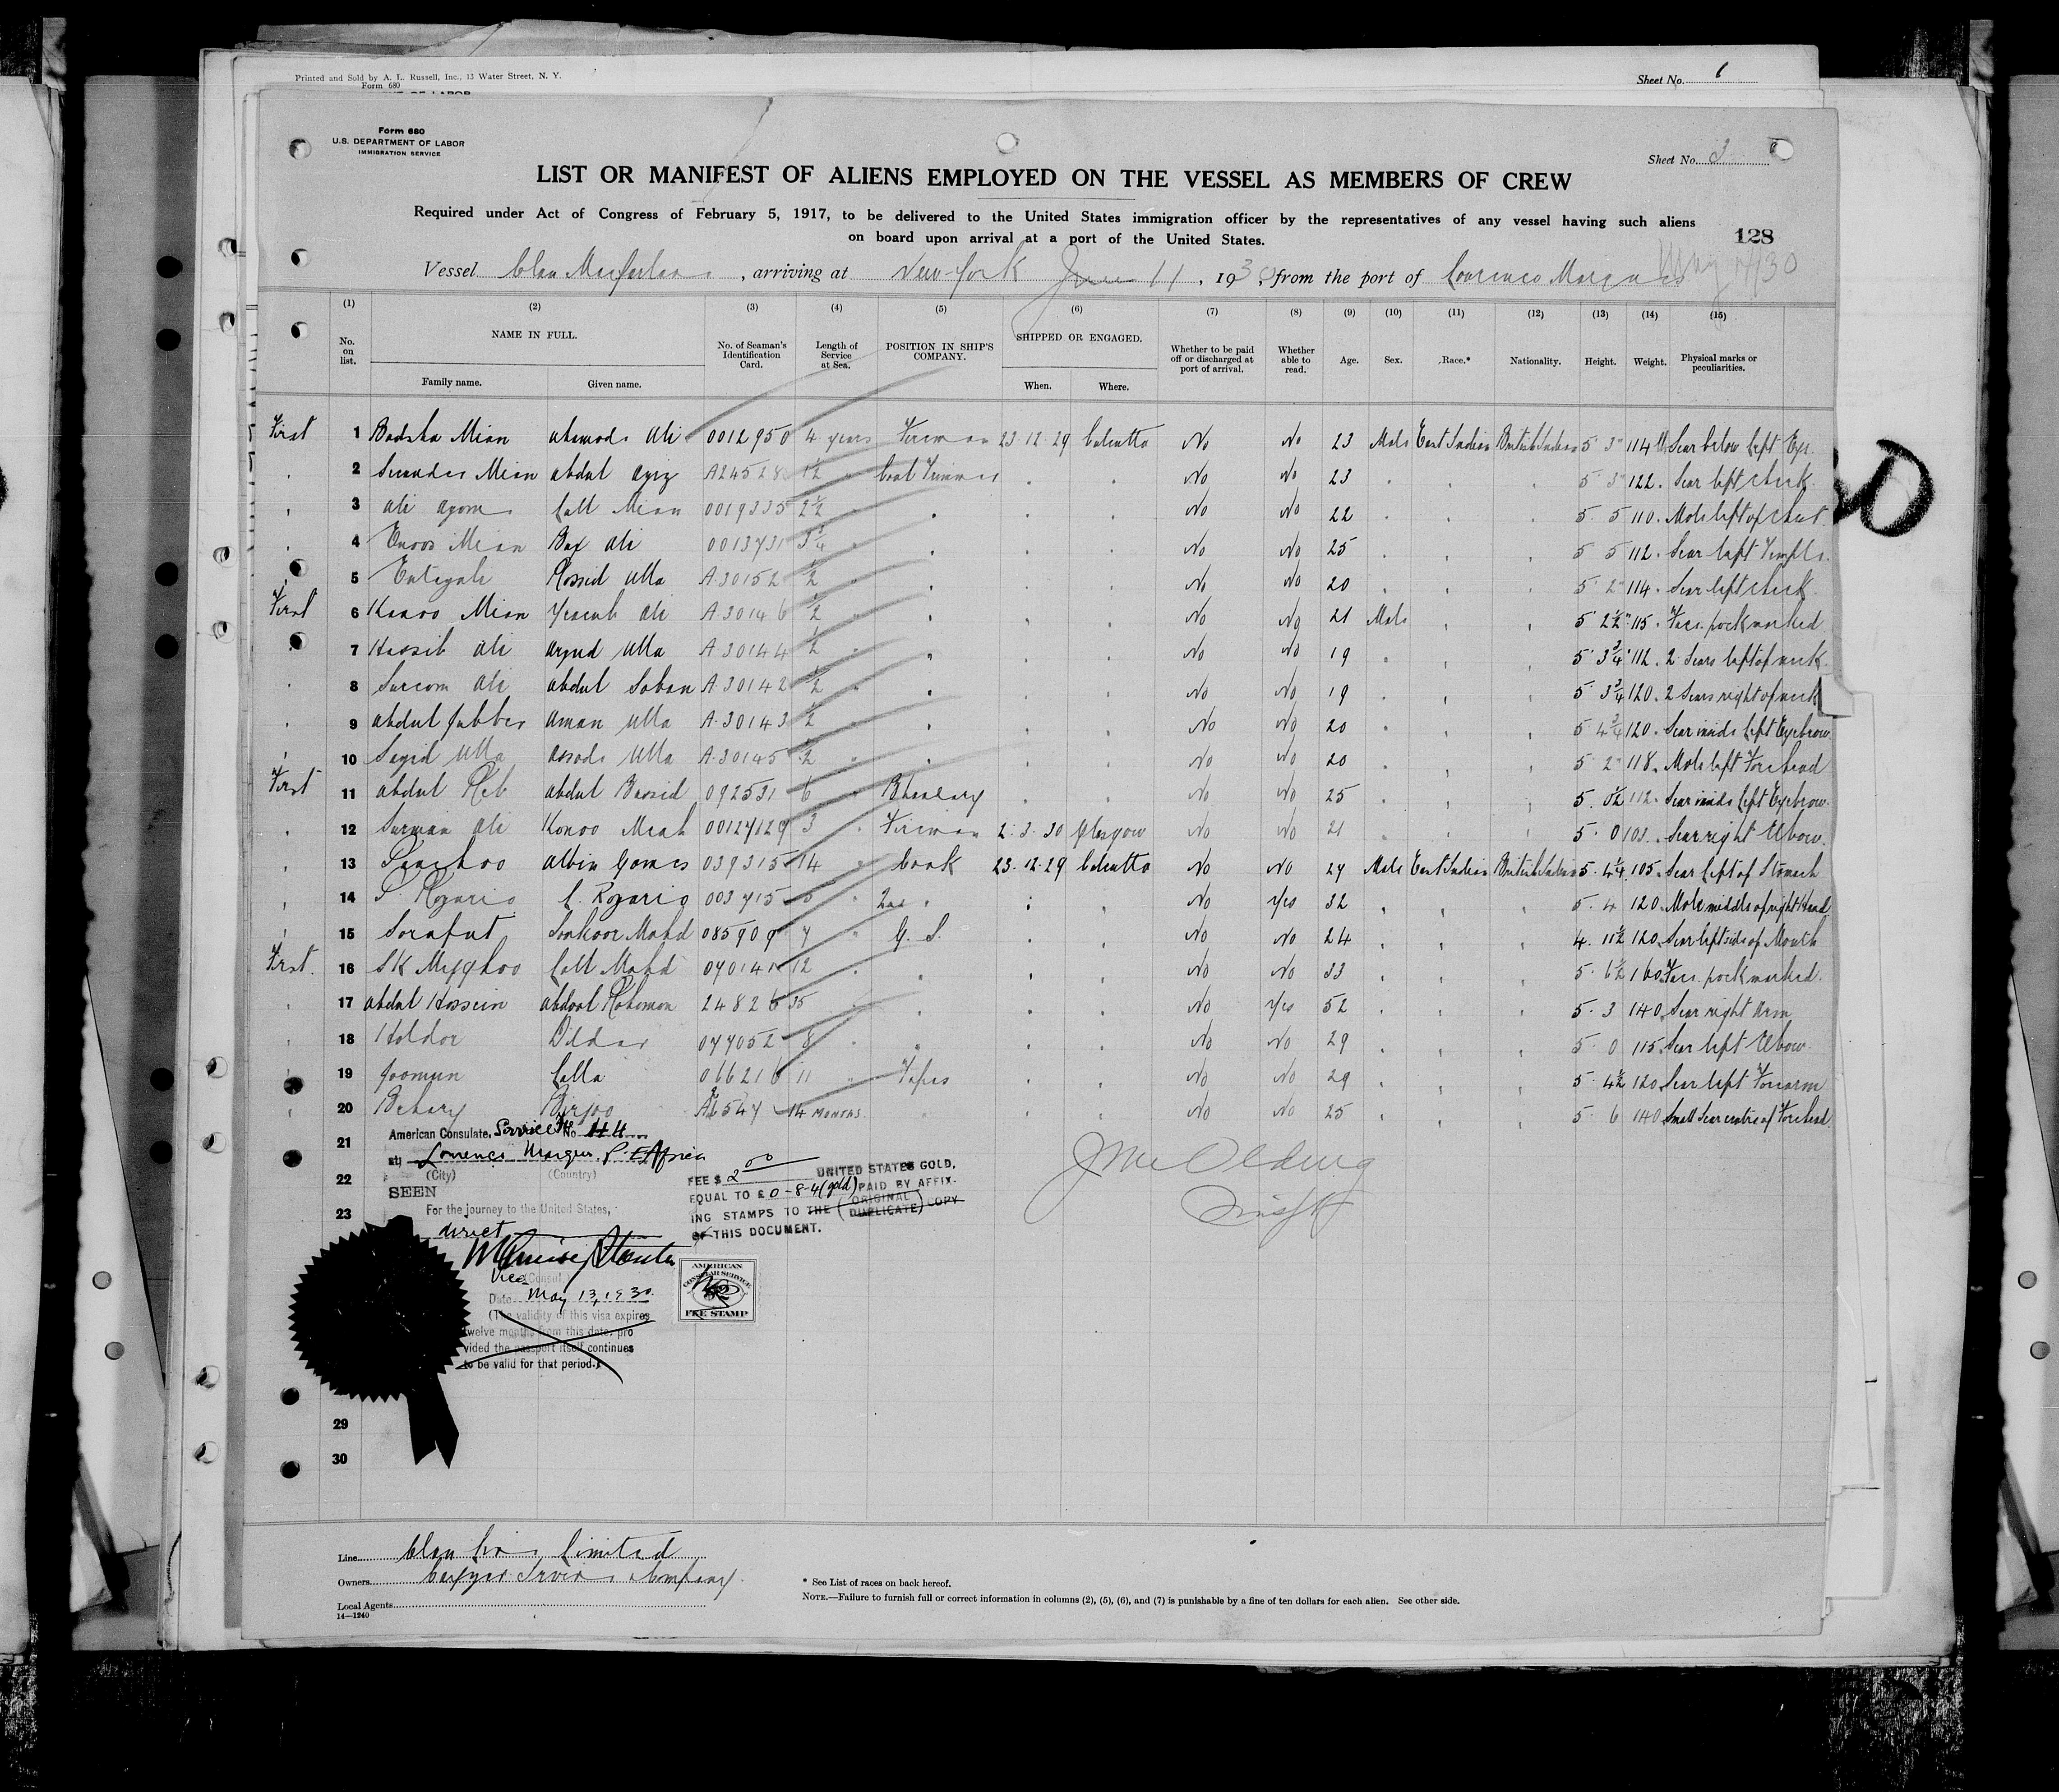 Printed and Sold by A. L. Russell, Inc., 13 Water Street, N. Y.
Form 680
Sheet No. 1
Form 680
U.S. DEPARTMENT OF LABOR
IMMIGRATION SERVICE
Sheet No. 3
LIST OR MANIFEST OF ALIENS EMPLOYED ON THE VESSEL AS MEMBERS OF CREW
Required under Act of Congress of February 5, 1917, to be delivered to the United States immigration officer by the representatives of any vessel having such aliens
on board upon arrival at a port of the United States.
128
Vessel Clan Macfarlane, arriving at New York June 11, 1930, from the port of Lourenco Marques May 14/30
(1) (2) (3) (4) (5) (6) (7) (8) (9) (10) (11) (12) (13) (14) (15)
No. on list. NAME IN FULL. Family name. Given name. No. of Seaman's Identification Card. Length of Service at Sea. POSITION IN SHIP'S COMPANY. SHIPPED OR ENGAGED. When. Where. Whether to be paid off or discharged at port of arrival. Whether able to read. Age. Sex. Race.* Nationality. Height. Weight. Physical marks or peculiarities.
First 1 Badsha Mian Ahamode Ali 0012950 4 years Fireman 23.12.29 Calcutta No No 23 Male East Indian British Indian 5 3" 114 lb Scar below left Eye.
2 Mian Abdul Aziz A24528 1½ " Coal Trimmer No No 23 5 3" 122. Scar left cheek.
3 Ali Lall Mian 0019335 2½ No No 22 5 5 110. Mole left of chest.
4 Mian Box Ali 0013731 3¾ No No 25 5 5 112. Scar left Temple.
5 Rossid Ulla A.30152 ½ No No 20 5 2" 114. Scar left cheek.
First 6 Kanoo Mian Yeacub Ali A.30146 ½ No No 21 Male 5 2½" 115. Face pock marked
7 Hassib Ali Ulla A 30144 ½ No No 19 5 3¾" 112. 2 Scars left of neck.
8 Ali Abdul Soban A.30142 ½ No No 19 5 3¾ 120. 2 Scars right of neck
9 Abdul Jubber Aman Ulla A.30143 ½ No No 20 5 4¾ 120. Scar inside left Eyebrow
10 Ulla Ulla A.30145 ½ No No 20 5 2" 118. Mole left Forehead
First 11 Abdul Abdul 092531 6 " Bhandary No No 25 5. 0½ 112. Scar inside left Eyebrow.
12 Surman Ali Konoo Miah 00127129 3 " Fireman 2.3.30 Glasgow No No 21 5. 0 Scar right Elbow.
13 Panchoo Albin Gomes 039315 14 " Cook 23.12.29 Calcutta No No 27 Male East Indian British Indian 5. 4¼ 105. Scar left of Stomach
14 003715 5 " 2nd " No Yes 32 5. 4 120. Mole middle of right Hand
15 Sorafut 085909 7 " G. S. No No 24 4. 11½ 120. Scar left side of Mouth
First. 16 Lall Mahd 070141 12 " No No 33 5. 6½ 160. Face pock marked.
17 Abdul Hossein Abdool Rohoman 24826 35 No Yes 52 5. 3 140. Scar right Arm
18 Holdor Dildar 077052 8 No No 29 5 0 115. Scar left Elbow.
19 Joomun Lalla 066216 11 " Topas No No 29 5. 4½ 120. Scar left Forearm
20 Behary Birjoo 14 MONTHS. No No 25 5. 6 140 Small Scar centre of Forehead.
American Consulate, Service No.
21
at Lourenço Marques, P. E. Africa
(City) (Country)
22
SEEN
FEE $ 2 00 UNITED STATES GOLD,
EQUAL TO £0-8-4 (gold) PAID BY AFFIX-
ING STAMPS TO THE (ORIGINAL DUPLICATE) COPY
OF THIS DOCUMENT.
23
For the journey to the United States,
direct
Vice (Consul)
Date May 13, 1930.
(The validity of this visa expires
twelve months from this date, pro
vided the passport itself continues
to be valid for that period.)
AMERICAN
CONSULAR SERVICE
FEE STAMP
29
30
Line Clan Line Limited
Owners Cayzer Irvine & Company.
Local Agents
14—1240
* See List of races on back hereof.
NOTE.—Failure to furnish full or correct information in columns (2), (5), (6), and (7) is punishable by a fine of ten dollars for each alien. See other side.